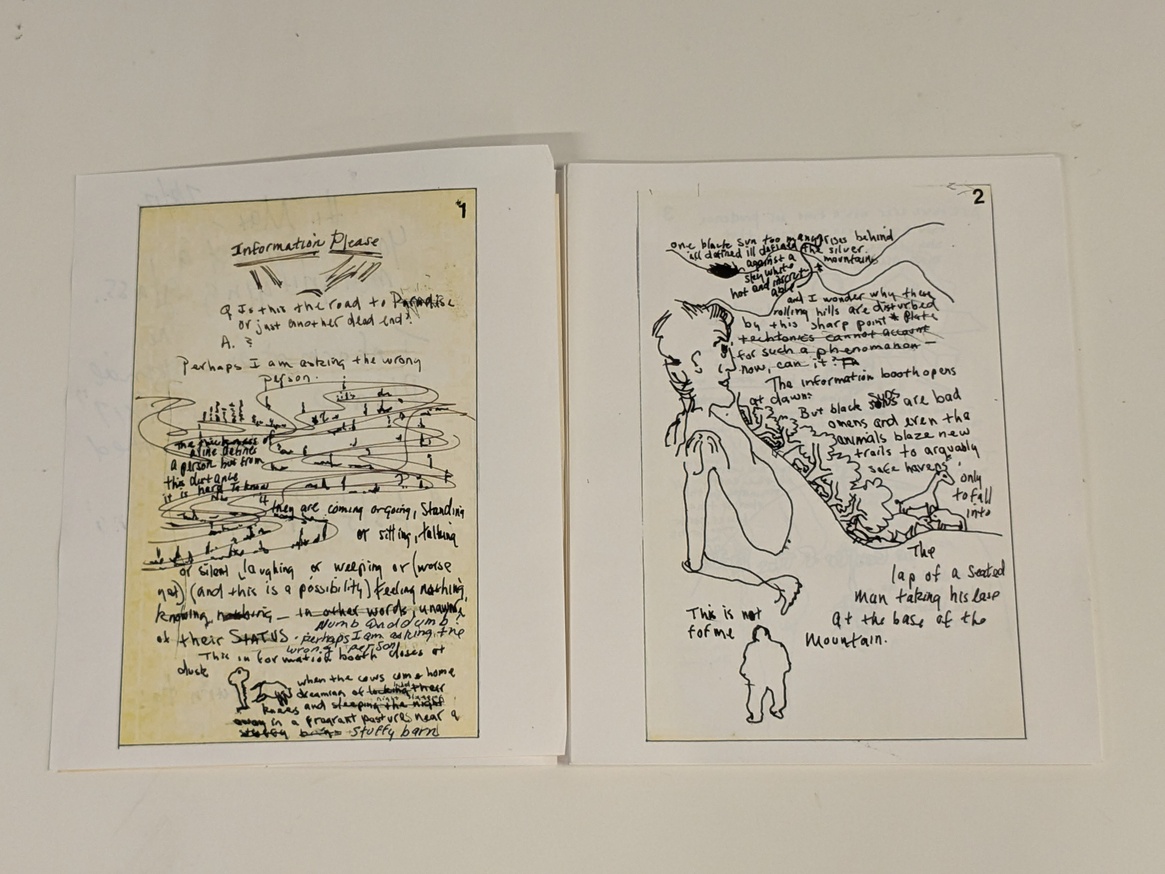 1
Information Please
Q Is this the road to Paradise
or just another dead end?
A. ?
Perhaps I am asking the wrong
person.
the thickness of
a line defines
a person but from
this distance
it is hard to know
if they are coming or going, standing
or sitting, talking
or silent, laughing or weeping or (worse
yet) (and this is a possibility) feeling nothing,
knowing nothing — in other words, unaware
of their STATUS.
Numb and dumb.
perhaps I am asking the
wrong person
This information booth closes at
dusk
when the cows come home
dreaming of locking their
knees and sleeping the night
away in a fragrant pasture near a
stuffy barn
2
one black sun too many rises behind
ill defined the silver
against a mountains
sky white
hot and
and I wonder why these
rolling hills are disturbed
by this sharp point * Plate
techtonics cannot account
for such a phenomanon —
now, can it?
The information booth opens
at dawn.
But black suns are bad
omens and even the
animals blaze new
trails to arguably
safe havens
only
to fall
into
The
lap of a seated
man taking his
at the base of the
mountain.
This is not
for me